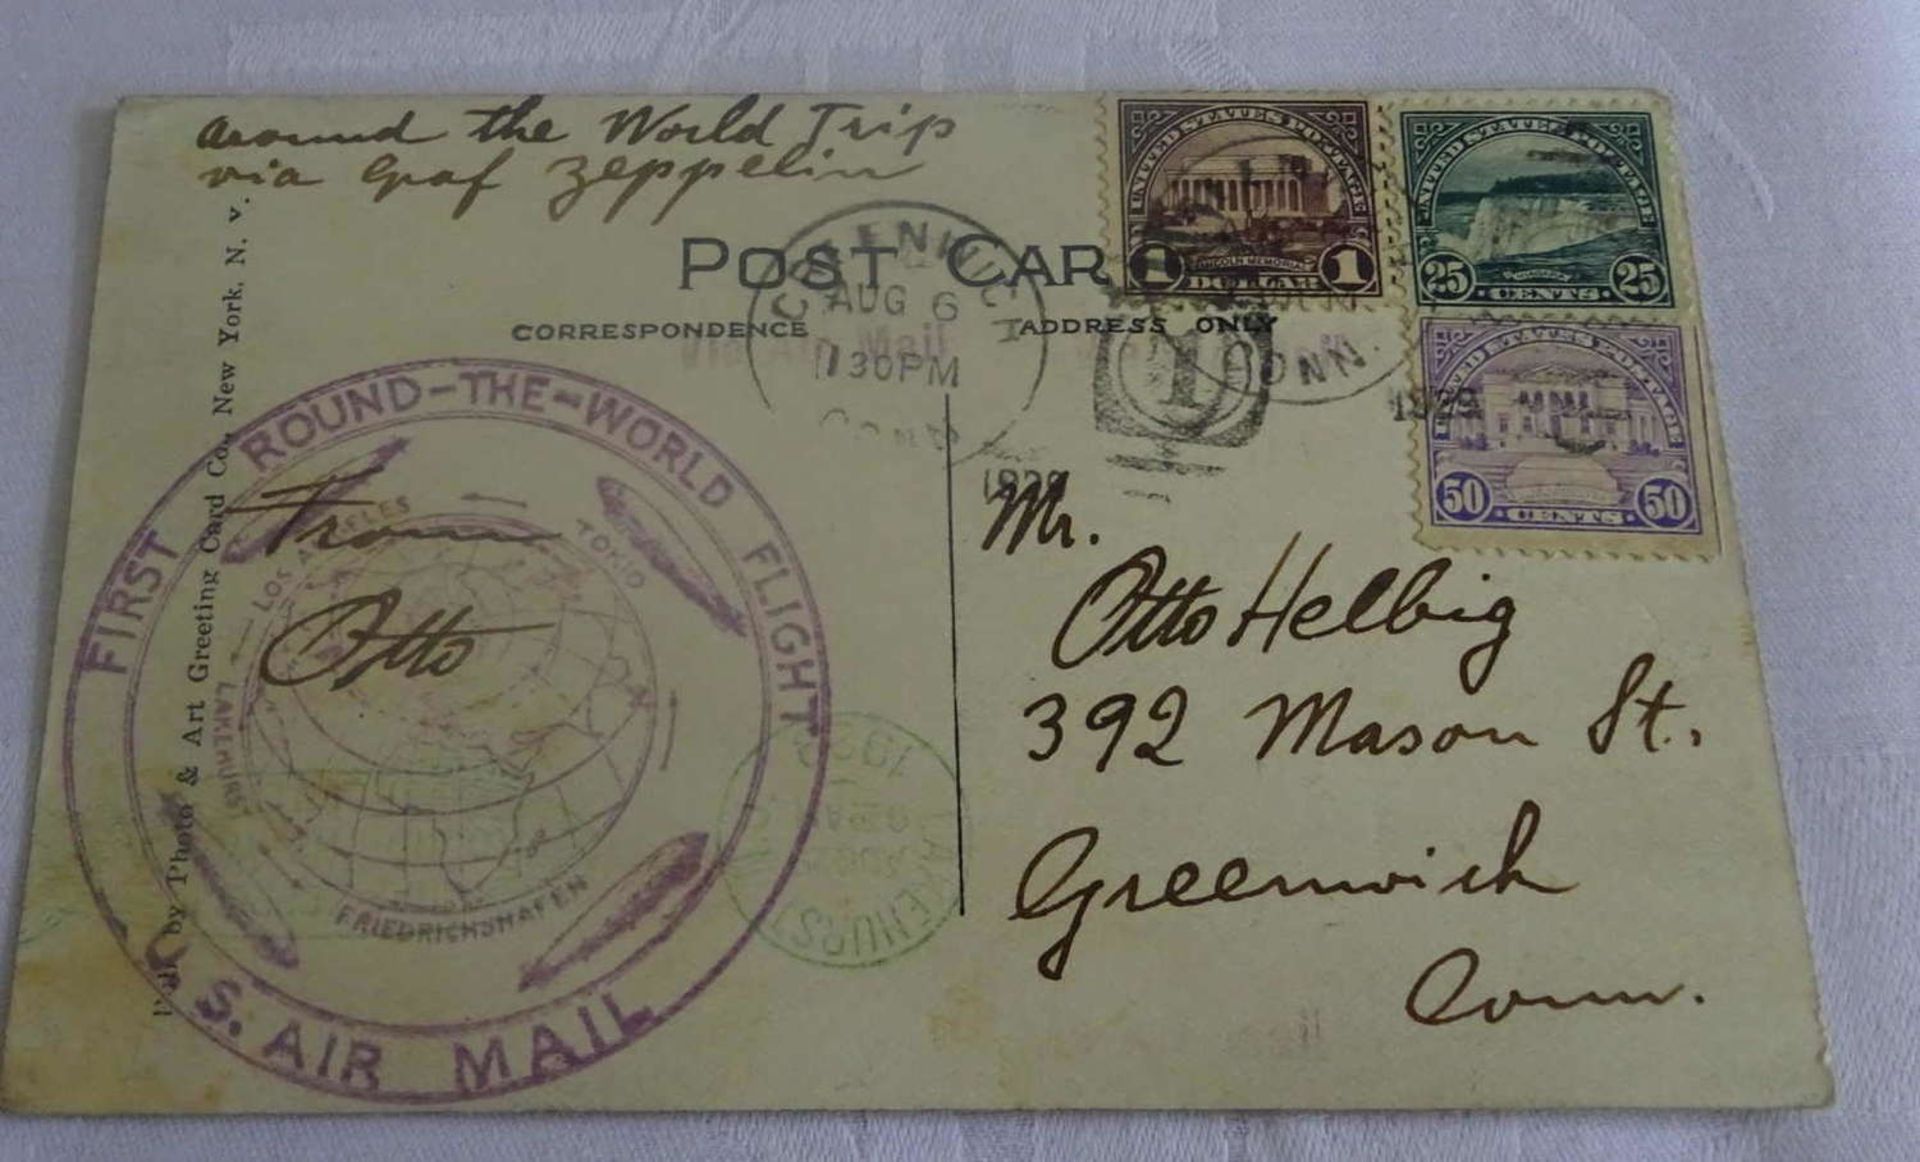 around the World Trip
via Graf Zeppelin
POST CAR
CORRESPONDENCE
ADDRESS ONLY
Via Air Mail
UNITED STATES POSTAGE
LINCOLN MEMORIAL
1 DOLLAR 1
UNITED STATES POSTAGE
NIAGARA
25 CENTS 25
UNITED STATES POSTAGE
50 CENTS 50
GREENWICH
AUG 6
1130PM
CONN
1929
1
CONN.
1929
by Photo & Art Greeting Card Co., New York, N. Y.
FIRST ROUND-THE-WORLD FLIGHT
S. AIR MAIL
LOS ANGELES
TOKIO
LAKEHURST
FRIEDRICHSHAFEN
From
Otto
LAKEHURST
AUG
1929
Mr.
Otto Helbig
392 Mason St.
Greenwich
Conn.